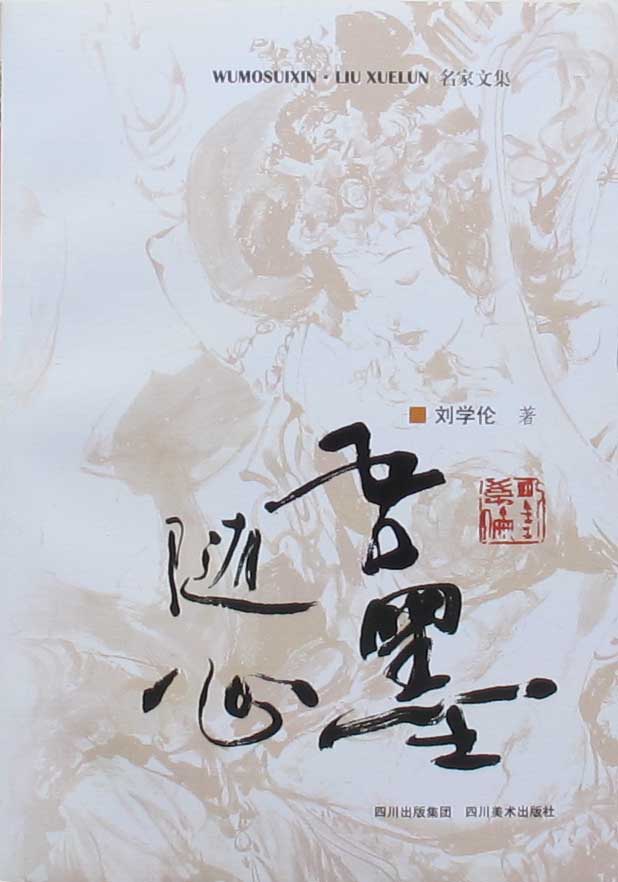 WUMOSUIXIN · LIU XUELUN 名家文集
刘学伦 著
吾墨
随心
四川出版集团 四川美术出版社